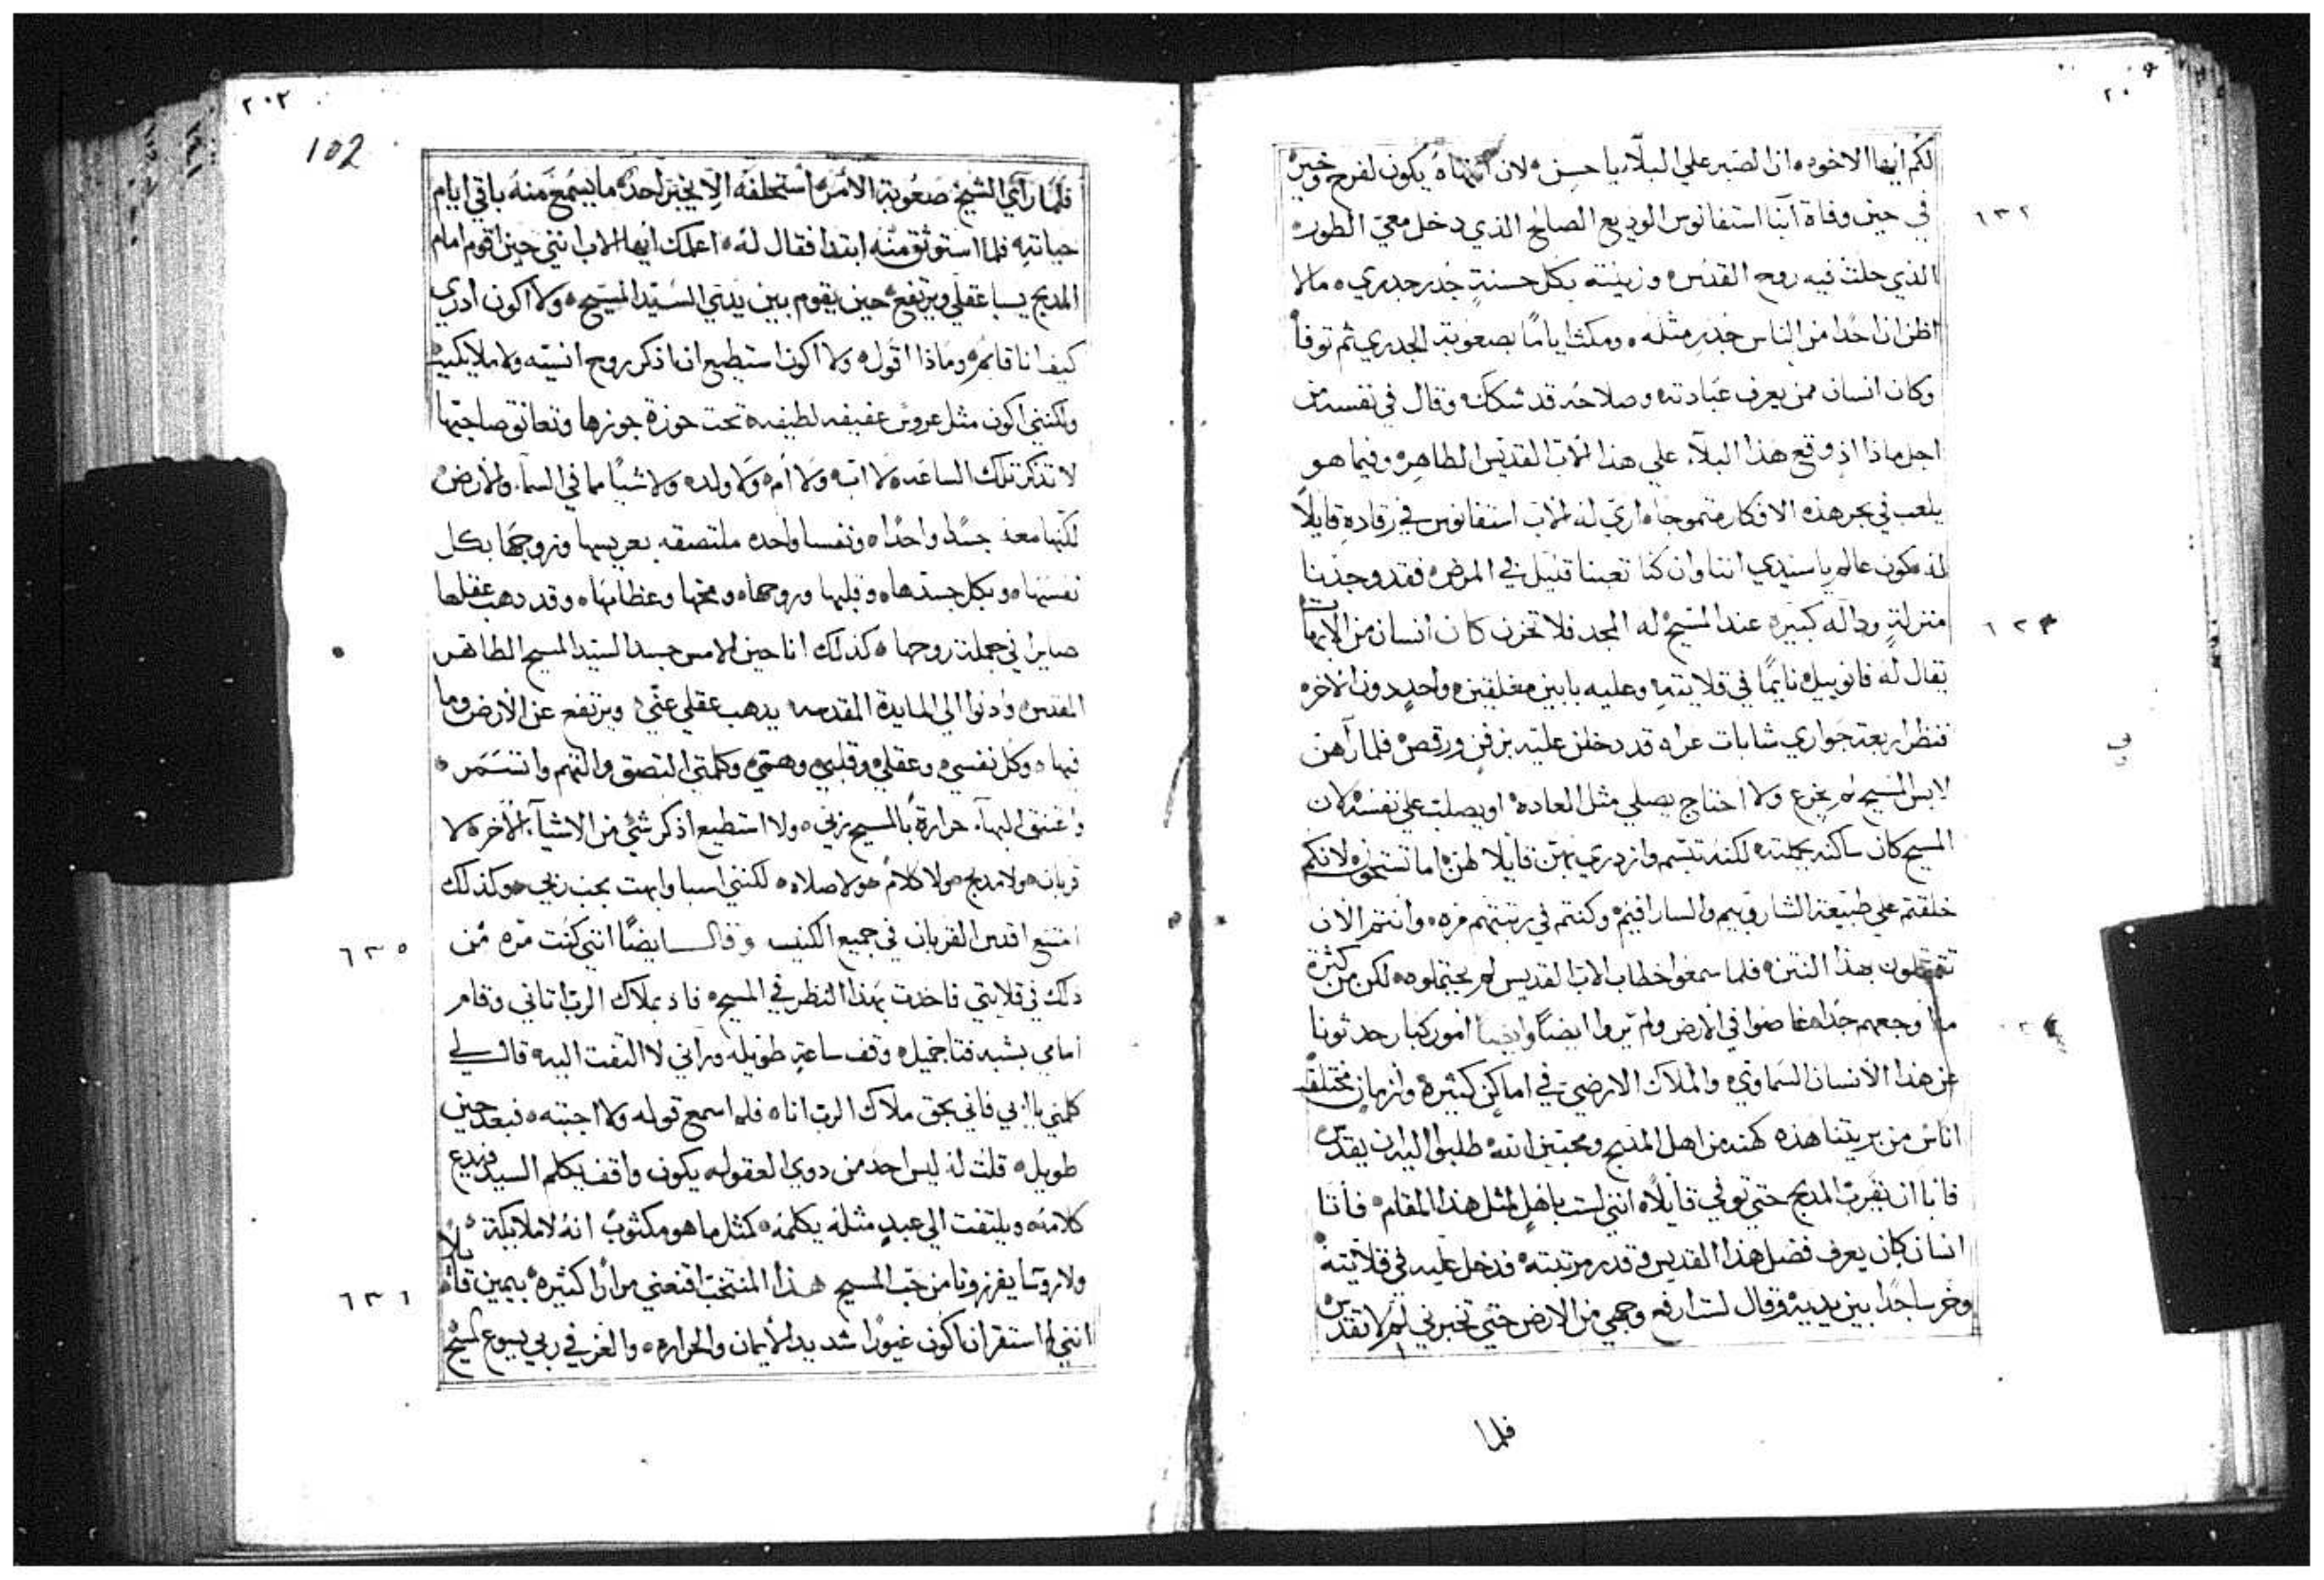 لكم ايها الاخوه ان الصبر علي البلاء يا حسن لان انتهاه يكون لفرح وخير
في حين وفاة آنبا استفانوس الوديع الصالح الذي دخل معي الطور
٦٣٢
الذي حلت فيه روح القدس وزينته بكل حسنةٍ جُدر جدري ما لا
اظن ان احدًا من الناس جُدرِ مثله ومكث اياما بصعوبة الجدري ثم توفا
وكان انسان ممن يعرف عبادته وصلاحه قد شكك وقال في نفسه من
اجل ماذا اذ وقع هذا البلاء علي هذا الاب القديس الطاهر وفيما هو
يلعب في بحر هذه الافكار متموجا اري له الاب استفانوس في رقاده قايلًا
له كون عالم يا سيدي اننا وان كنا تعبنا قليل في المرض فقد وجدنا
منزلةٍ وداله كبيره عند المسيح له المجد فلا تحزن كان انسان من الابهات
يقال له فانوبيل نايمًا في قلايته وعليه بابين مغلقين واحدٍ دون الاخر
فنظر اربعة جواري شابات عراه قد دخلن عليه بزفنٍ ورقص فلما رآهن
لابس المسيح لم يخزع ولا احتاج يصلي مثل العاده او يصلب علي نفسه لان
المسيح كان ساكنه بجملته لكنه تبسم وازدري بهن قايلا لهن اما تستحون لانكم
خلقتم علي طبيعة الشاروبيم والسارافيم وكنتم في رتبتهم مره وانتم الان
بهذا النتن فلما سمعوا خطاب الاب القديس لم يحتملوه لكن من كثرة
ما اوجعهم جدا غاصوا في الارض ولم يروا ايضًا وايضا امور كبار حدثونا
عن هذا الانسان السماوي والملاك الارضي في اماكن كثيرة وازمان مختلفه
اناس من بريتنا هذه كهنه من اهل المذبح ومحبين الله طلبوا اليه ان يقدس
فابا ان يقرب المذبح حتي توفي قايلًا انني لست باهلٍ لمثل هذا المقام فاتا
انسان كان يعرف فضل هذا القديس وقدر مرتبته فدخل عليه في قلايته
وخر ساجدًا بين يديه وقال لست ارفع وجهي من الارض حتي تخبرني لم لا تقدس
فلما
٢٠٢
102
فلما رآي الشيخ صعوبة الامر استحلفه الا يخبر احد ما يسمع منه باقي ايام
حياته فلما استوثق منه ابتدا فقال له اعلمك ايها الاب انني حين اقوم امام
المذبح يسبا عقلي ويرتفع حين يقوم بين يدي السيد المسيح ولا اكون ادري
كيف انا قايم وماذا اقول ولا اكون استطيع ان اذكر روح انسيه ولا ملايكيه
ولكنني اكون مثل عروس عفيفه لطيفه تحت حوزة جوزها وتعانق صاحبها
لا تذكر تلك الساعه لا اب ولا ام ولا ولد ولا شيا مما في السماء والارض
لكنها معه جسدًا واحدًا ونفسا واحده ملتصقه بعريسها وزوجها بكل
نفسها وبكل جسدها وقلبها وروحها ومخها وعظامها وقد دهب عقلها
صايرا في جملة زوجها كذلك انا حين الامس جسد السيد المسيح الطاهر
المقدس وادنوا الي المايدة المقدسه يدهب عقلي عني ويرتفع عن الارض وما
فيها وكل نفسي وعقلي وقلبي وهمتي وكلمتي التصق والتهم واتسمر
حرارةً بالمسيح ربي ولا استطيع اذكر شي من الاشياء الاخر لا
قربان ولا مذبح ولا كلام ولا صلاه لكنني اسبا وابهت بحب ربي وكذلك
٦٣٥
امتنع اقدس القربان في جميع الكنيسه وقال ايضًا انني كنت مره من
ذلك في قلايتي فاخدت بهذا النظر في المسيح فاذ بملاك الرب اتاني وقام
امامي بشبه فتا جميل وقف ساعةٍ طويله وراني لا التفت اليه قال لي
كلمني يا ابي فاني بحق ملاك الرب انا فلم اسمع قوله ولا اجبته فبعد حين
طويل قلت له ليس احد من دوي العقول يكون واقف يكلم السيد فيدع
كلامه ويلتفت الي عبدٍ مثله يكلمه كمثل ما هو مكتوب انه لا ملايكة
ولا روسا يفرزونا من حب المسيح هذا المنتخب اقنعني مرارًا كثيره بيمين قايلًا
٦٣٦
انني لم استقر ان اكون غيورًا شديد الايمان والحراره في ربي يسوع المسيح